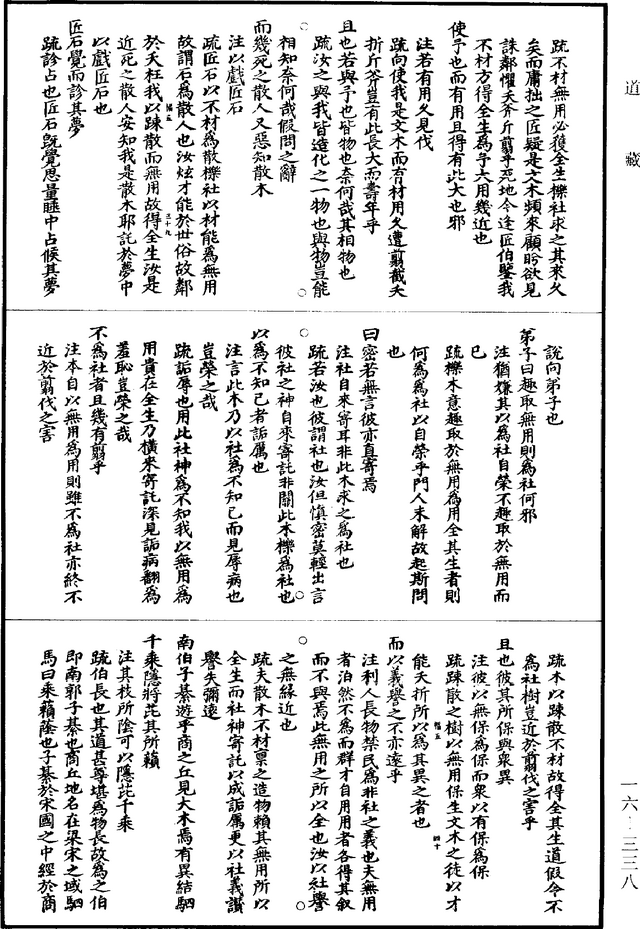 道藏
疏不材無用必獲全生櫟社求之其來久
矣而庸拙之匠疑是文木頻來顧眄欲見
誅鄰懼夭斧斤翦乎死地今逢匠伯鑒我
不材方得全生為予大用幾近也
使予也而有用且得有此大也邪
注若有用久見伐
疏向使我是文木而有材用久遭翦截夭
折斤斧豈有此長大而壽年乎
且也若與予也皆物也奈何哉其相物也
疏汝之與我皆造化之一物也與物豈能
相知奈何哉假問之辭
而幾死之散人又惡知散木
注以戲匠石
疏匠石以不材為散櫟社以材能為無用
故謂石為散人也汝炫才能於世俗故鄰
於夭枉我以踈散而無用故得全生汝是
近死之散人安知我是散木耶託於夢中
以戲匠石也
匠石覺而診其夢
疏診占也匠石旣覺思量睡中占候其夢
說向弟子也
弟子曰趣取無用則為社何邪
注猶嫌其以為社自榮不趣取於無用而
已
疏櫟木意趣取於無用為用全其生者則
何為為社以自榮乎門人未解故起斯問
也
曰密若無言彼亦直寄焉
注社自來寄耳非此木求之為社也
疏若汝也彼謂社也汝但慎密莫輕出言
彼社之神自來寄託非關此木櫟為社也
以為不知己者詬厲也
注言此木乃以社為不知己而見辱病也
豈榮之哉
疏詬辱也用此社神為不知我以無用為
用貴在全生乃橫來寄託深見詬病翻為
羞恥豈榮之哉
不為社者且幾有翦乎
注本自以無用為用則雖不為社亦終不
近於翦伐之害
疏木以踈散不材故得全其生道假令不
為社樹豈近於翦伐之害乎
且也彼其所保與衆異
注彼以無保為保而衆以有保為保
疏踈散之樹以無用保生文木之徒以才
能夭折所以為其異之者也
而以義譽之不亦遠乎
注利人長物禁民為非社之義也夫無用
者泊然不為而群才自用用者各得其叙
而不與焉此無用之所以全也汝以社譽
之無緣近也
疏夫散木不材稟之造物賴其無用所以
全生而社神寄託以成詬厲更以社義讚
譽失彌遠
南伯子綦遊乎商之丘見大木焉有異結駟
千乘隱將芘其所藾
注其枝所陰可以隱芘千乘
疏伯長也其道甚尊堪為物長故為之伯
即南郭子綦也商丘地名在梁宋之域駟
馬曰乘藾蔭也子綦於宋國之中經於商
一六·三三八